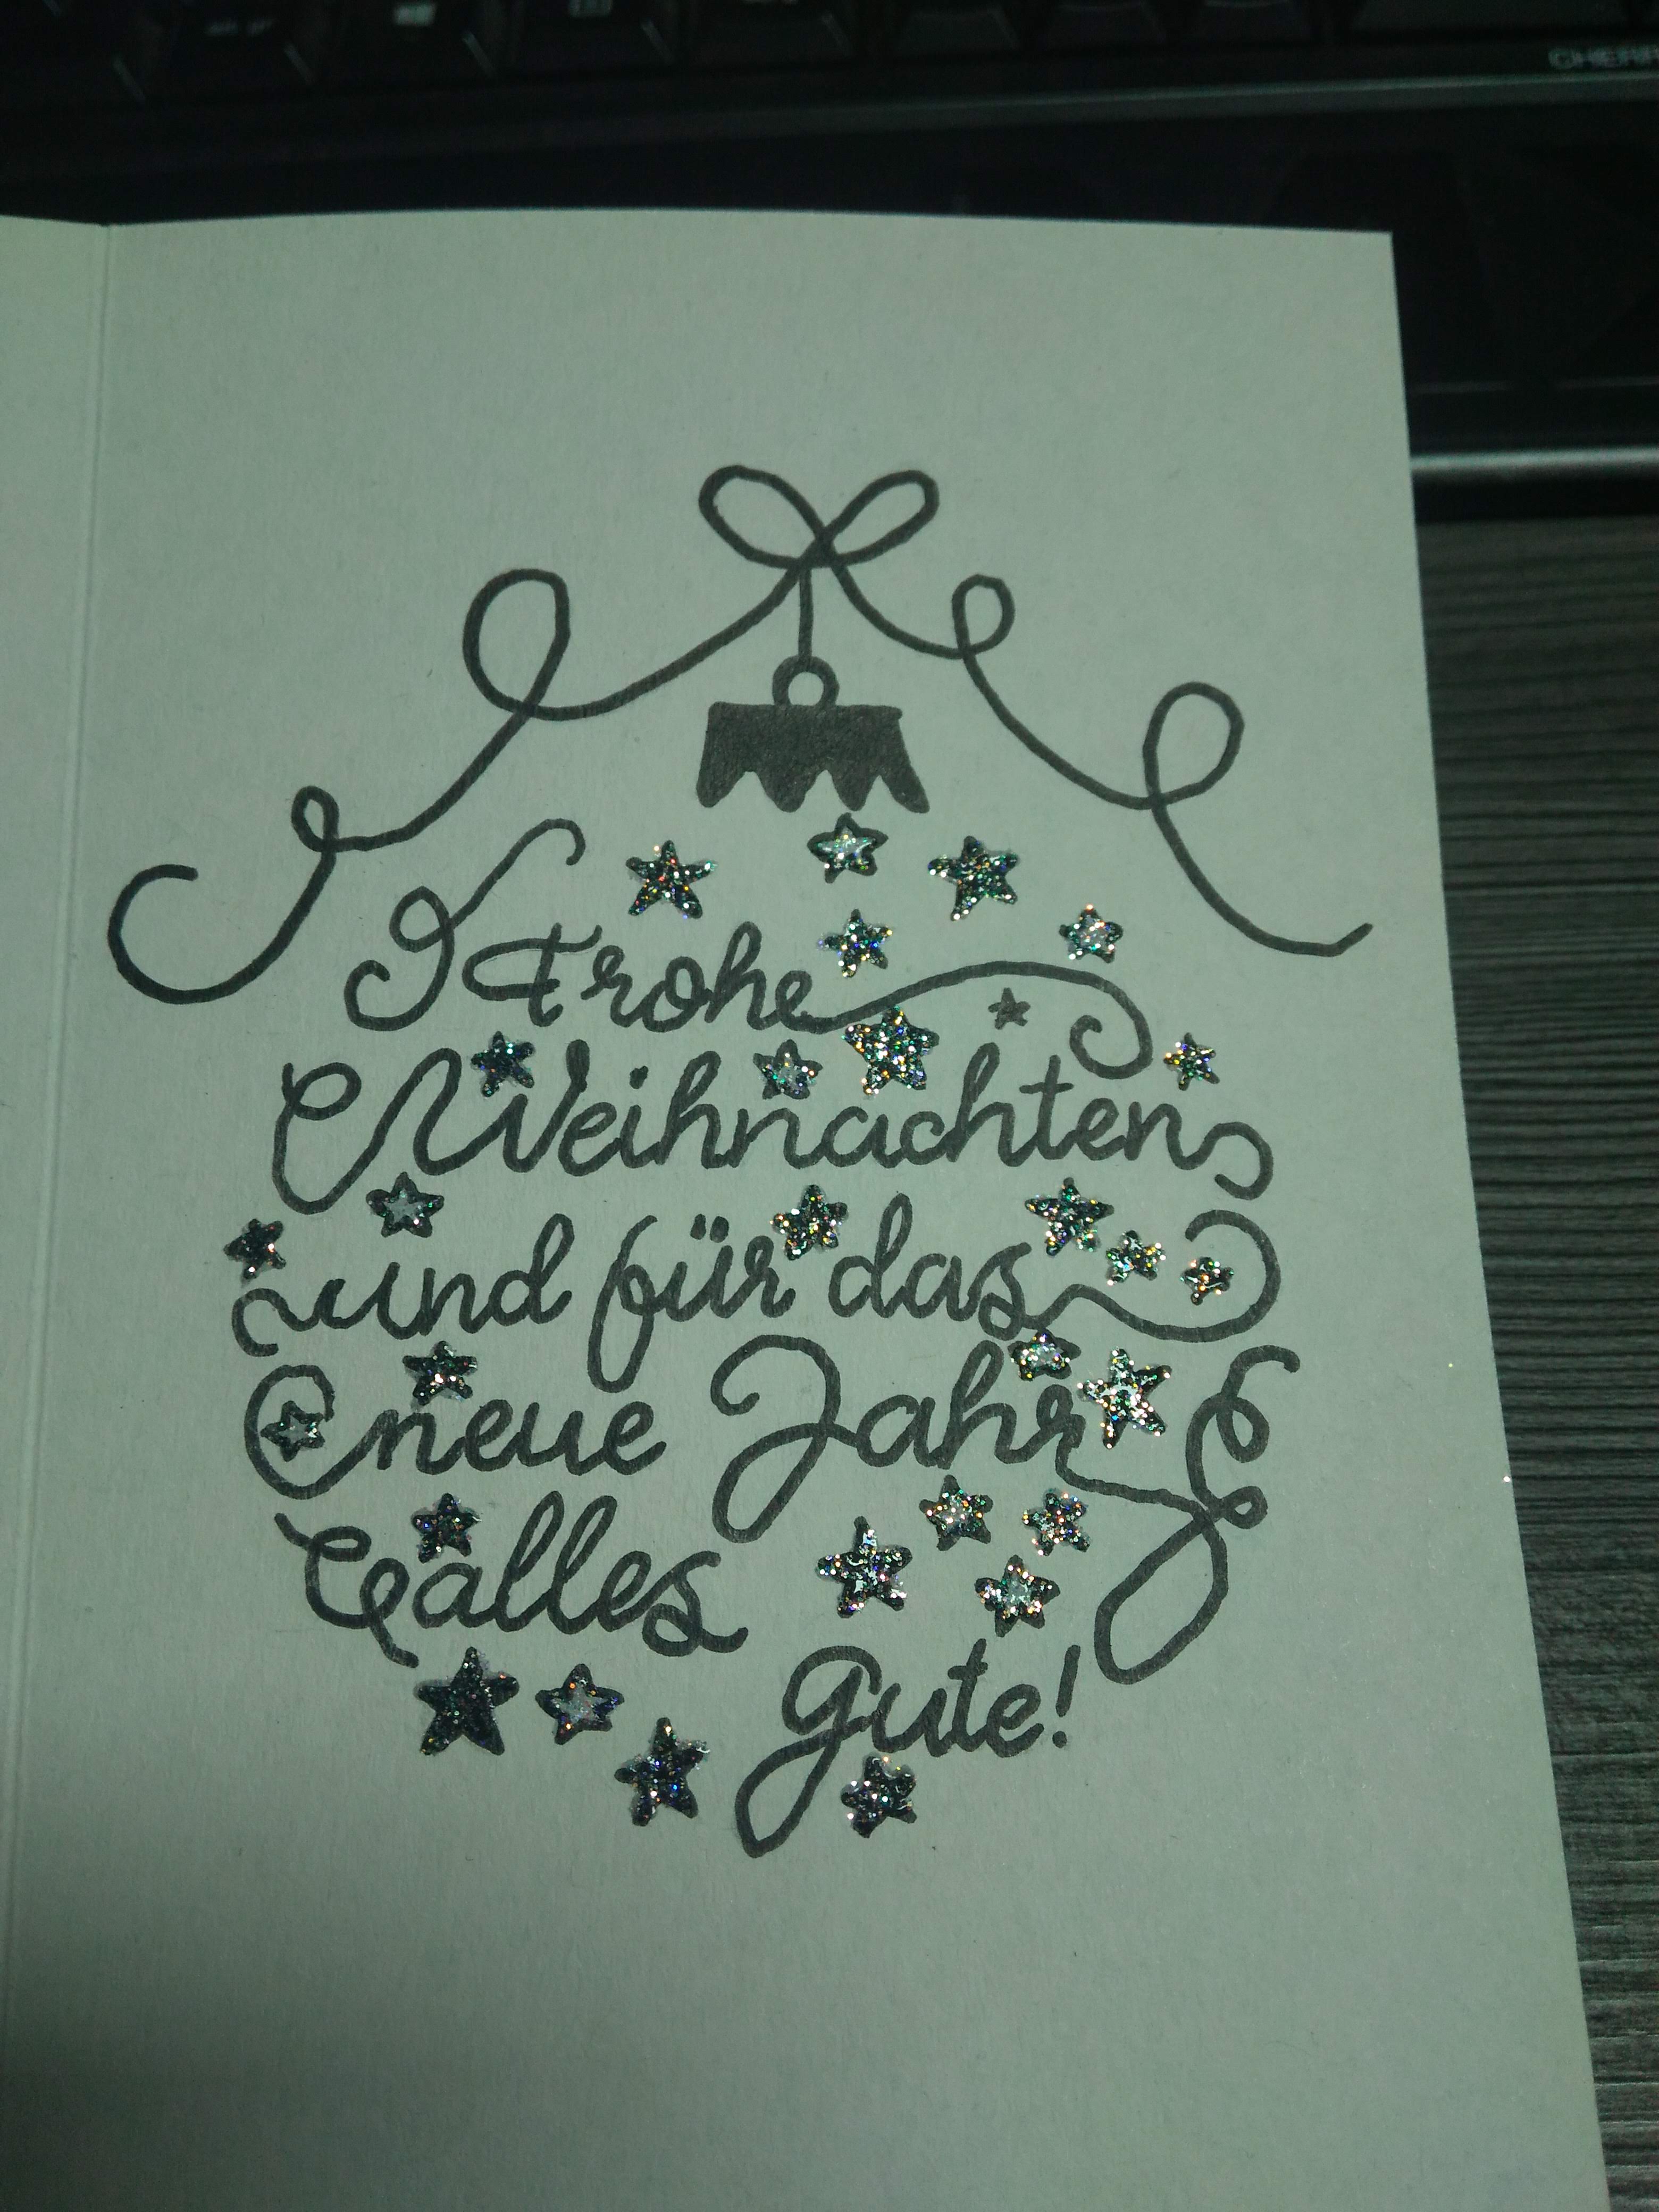 Frohe
Weihnachten
und für das
neue Jahr
alles
gute!